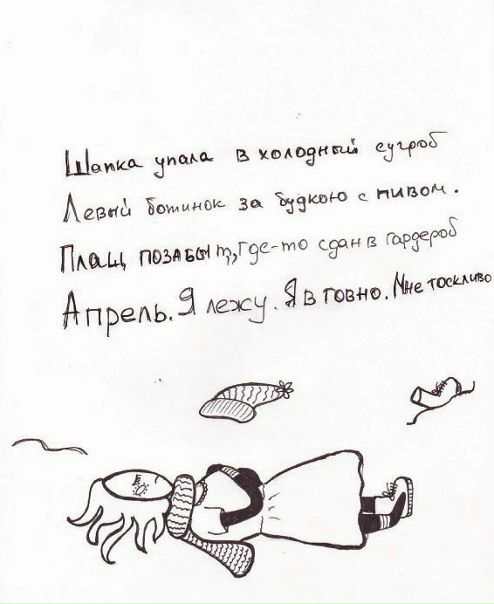 Шапка упала в холодный сугроб
Левый ботинок за будкою с пивом.
Плащ позабыт, где-то сдан в гардероб
Апрель. Я лежу. Я в говно. Мне тоскливо